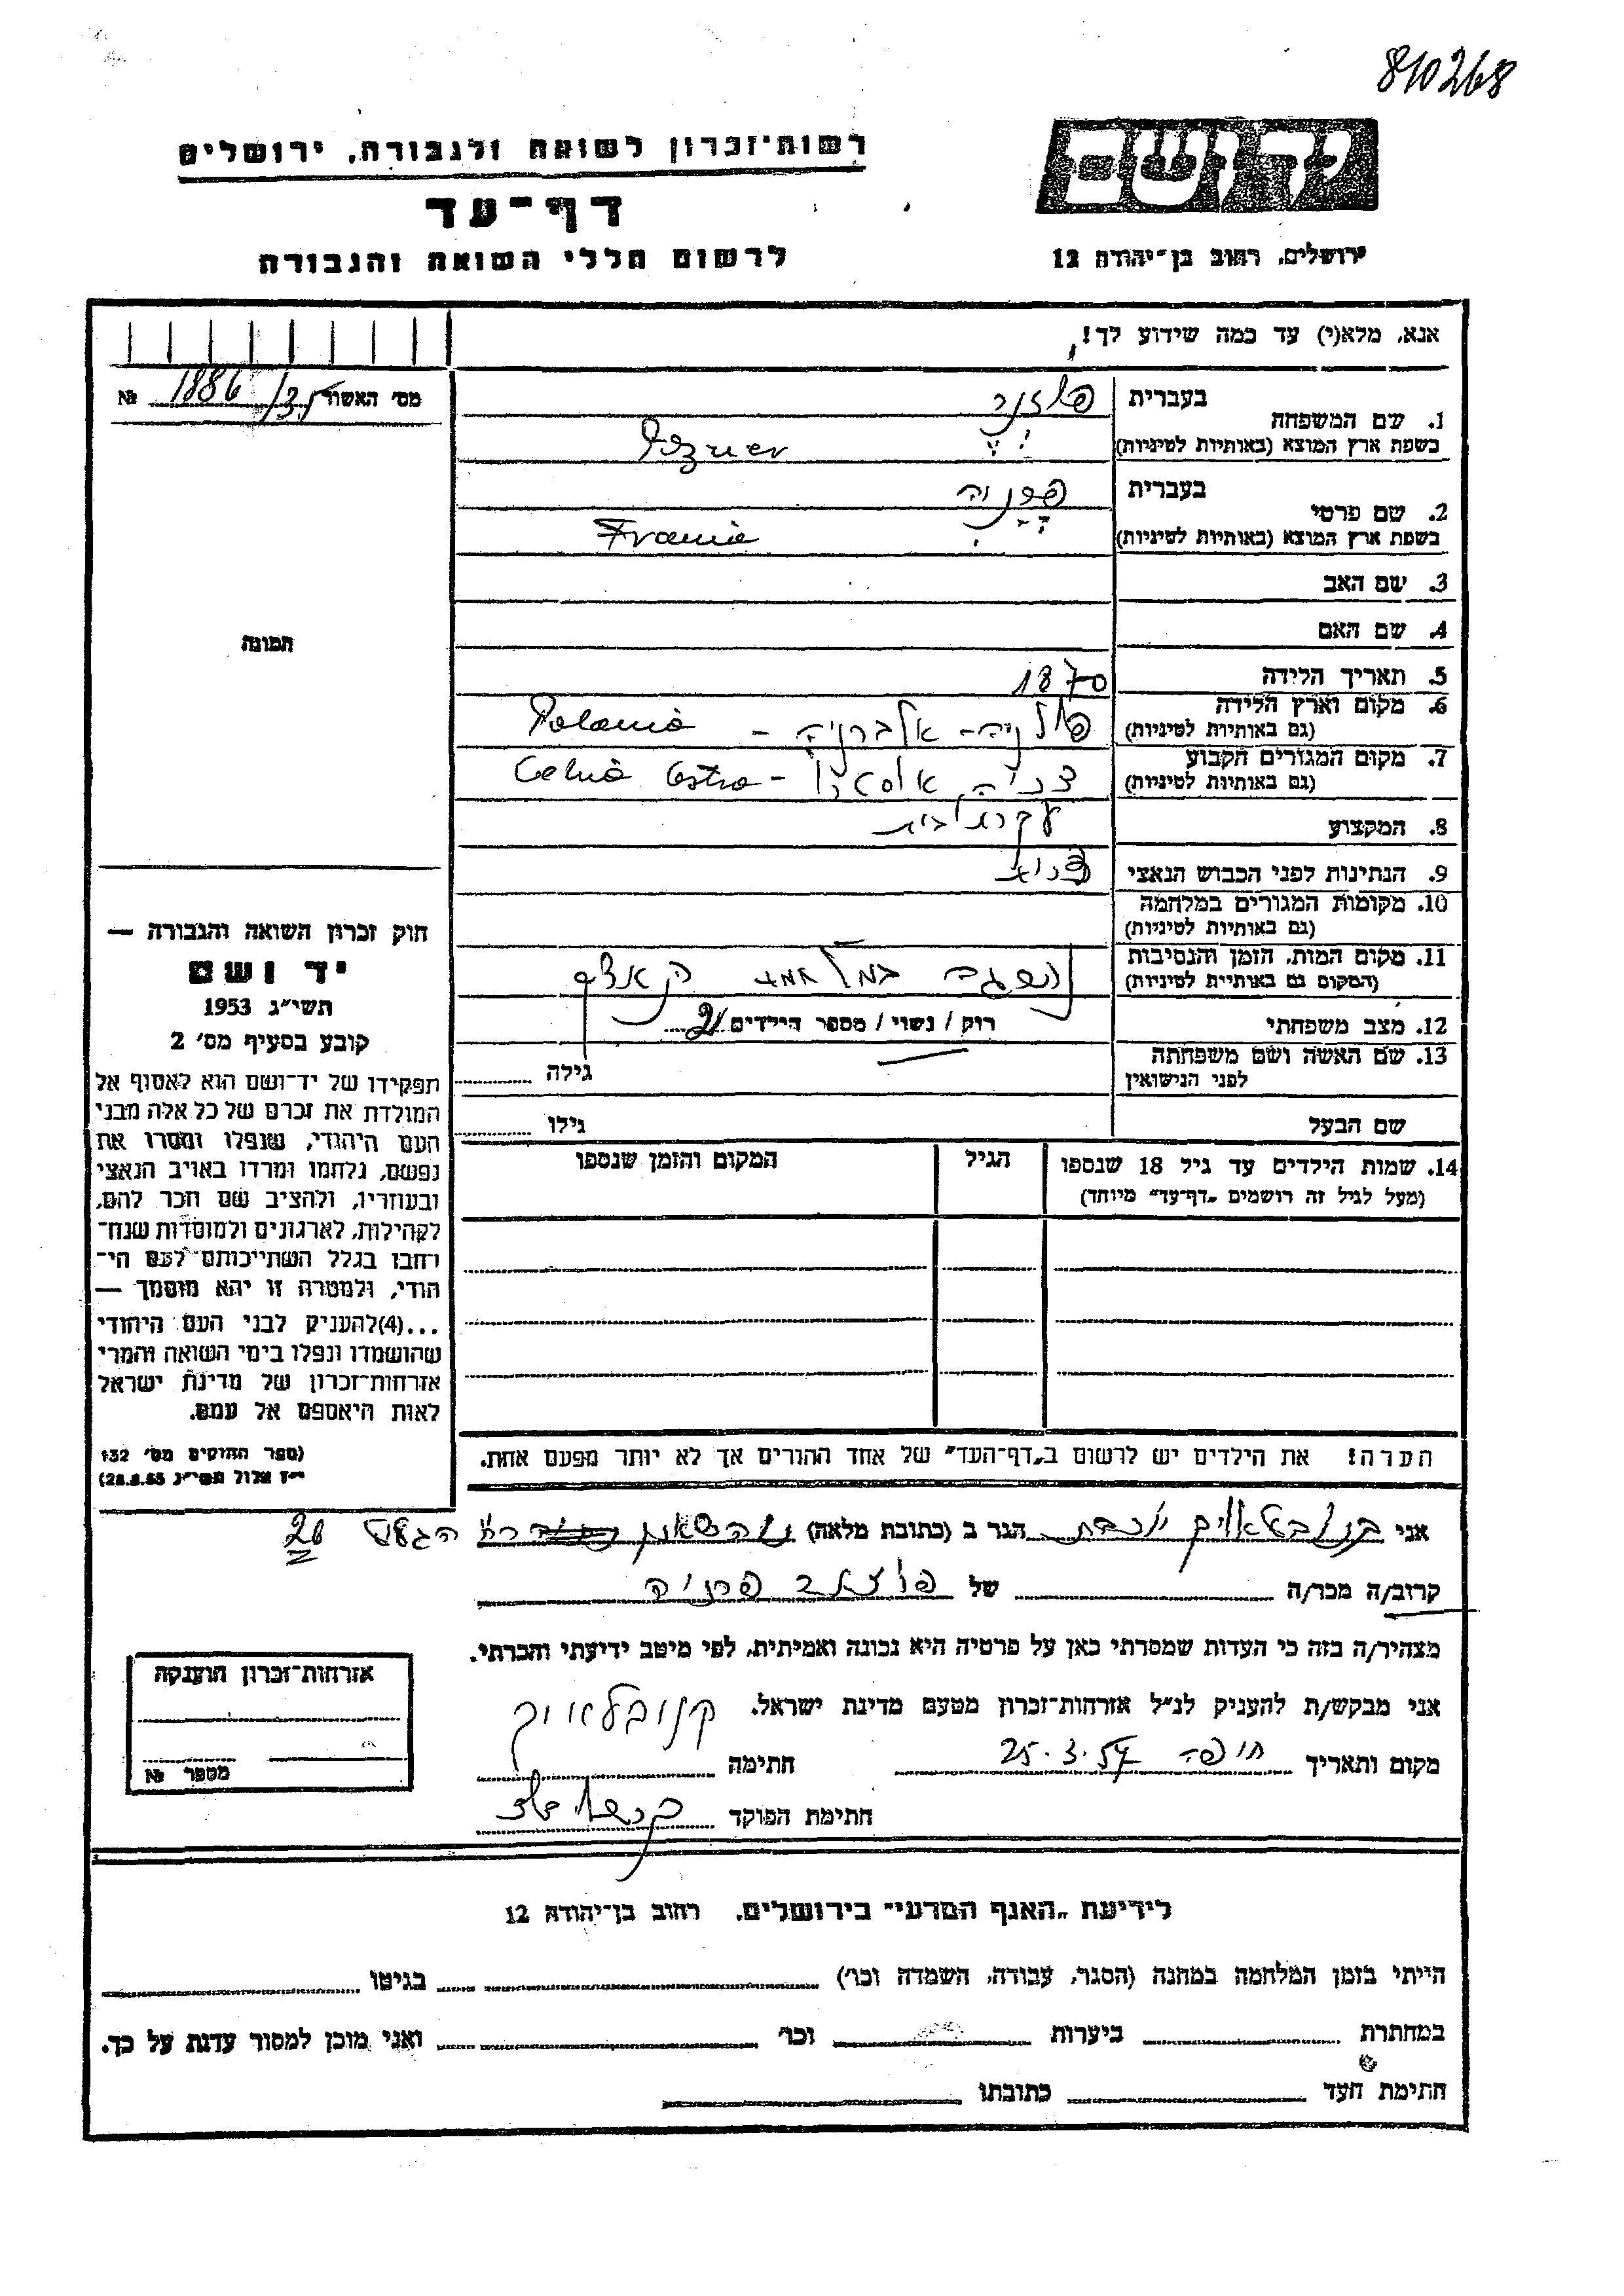 810268
רשות־זכרון לשואה ולגבורה, ירושלים
יד ושם
דף־עד
לרשום חללי השואה והגבורה
ירושלים, רחוב בן־יהודה 12
אנא, מלא(י) עד כמה שידוע לך!
מס׳ האשור 1886/35 №
1. שם המשפחה בעברית פוזנר
בשפת ארץ המוצא (באותיות לטיניות) Pozner
2. שם פרטי בעברית פרניה
בשפת ארץ המוצא (באותיות לטיניות) Frania
3. שם האב
4. שם האם
תמונה
5. תאריך הלידה 1870
6. מקום וארץ הלידה פולניה - Polania
(גם באותיות לטיניות)
7. מקום המגורים הקבוע
(גם באותיות לטיניות)
8. המקצוע עקרת בית
9. הנתינות לפני הכבוש הנאצי
10. מקומות המגורים במלחמה
(גם באותיות לטיניות)
11. מקום המות, הזמן והנסיבות
(המקום גם באותיות לטיניות)
12. מצב משפחתי רווק / נשוי / מספר הילדים 2
13. שם האשה ושם משפחתה גילה
לפני הנישואין
שם הבעל גילו
14. שמות הילדים עד גיל 18 שנספו הגיל המקום והזמן שנספו
(מעל לגיל זה רושמים „דף־עד״ מיוחד)
חוק זכרון השואה והגבורה —
יד ושם
תשי״ג 1953
קובע בסעיף מס׳ 2
תפקידו של יד־ושם הוא לאסוף אל
המולדת את זכרם של כל אלה מבני
העם היהודי, שנפלו ומסרו את
נפשם, נלחמו ומרדו באויב הנאצי
ובעוזריו, ולהציב שם וזכר להם,
לקהילות, לארגונים ולמוסדות שנח־
רבו בגלל השתייכותם לעם הי־
הודי, ולמטרה זו יהא מוסמך —
...(4)להעניק לבני העם היהודי
שהושמדו ונפלו בימי השואה והמרי
אזרחות־זכרון של מדינת ישראל
לאות היאספם אל עמם.
(ספר החוקים מס׳ 132
י״ז אלול תשי״ג 28.8.53)
הערה! את הילדים יש לרשום ב„דף־העד״ של אחד ההורים אך לא יותר מפעם אחת.
אני הגר ב (כתובת מלאה) 26
קרוב/ה מכר/ה של פוזנר פרניה
מצהיר/ה בזה כי העדות שמסרתי כאן על פרטיה היא נכונה ואמיתית, לפי מיטב ידיעתי והכרתי.
אני מבקש/ת להעניק לנ״ל אזרחות־זכרון מטעם מדינת ישראל.
מקום ותאריך חיפה 25.3.57 חתימה
חתימת הפוקד
אזרחות־זכרון הוענקה
מספר №
לידיעת „האגף המדעי״ בירושלים. רחוב בן־יהודה 12
הייתי בזמן המלחמה במחנה (הסגר, עבודה, השמדה וכו׳) בגיטו
במחתרת ביערות וכו׳ ואני מוכן למסור עדות על כך.
חתימת העד כתובתו